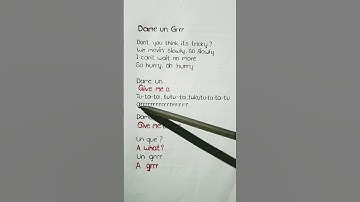 Dame un Grrr
Dont you think its tricky?
We movin' slowly, so slowly
I cant wait no more
So hurry, oh hurry
Dame un
Give me a
Tu-ta-ta, tutu-ta, tukutu-ta-ta-tu
grrrrrrrrrrrrrrrr
Dame
Give me
un qué?
A what?
un grrr
A grrr